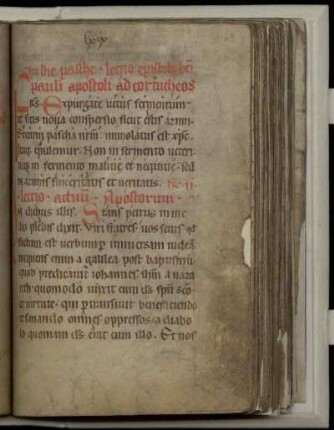 In die pasche · lectio epistole bti
pauli apostoli ad corintheos
Expurgate uetus fermentum ·
ut sitis noua conspersio sicut estis azimi ·
pascha nrm immolatus est xpc
epulemur · Non in fermento ueteri
in fermento malicie et nequicie · sed
sinceritatis et ueritatis ·
lectio · actuum · Apostolorum ·
diebus illis · Stans petrus in me
plebis dixit · Viri fratres uos scitis qd
factum est uerbum p uniuersam iudeā
incipiens enim a galilea post baptismū
quod predicauit iohannes ihm a naza
reth quomodo unxit eum ds spu sco
et uirtute · qui ptransiuit benefaciendo
et sanando omnes oppressos a diabo
lo quoniam ds erat cum illo · Et nos